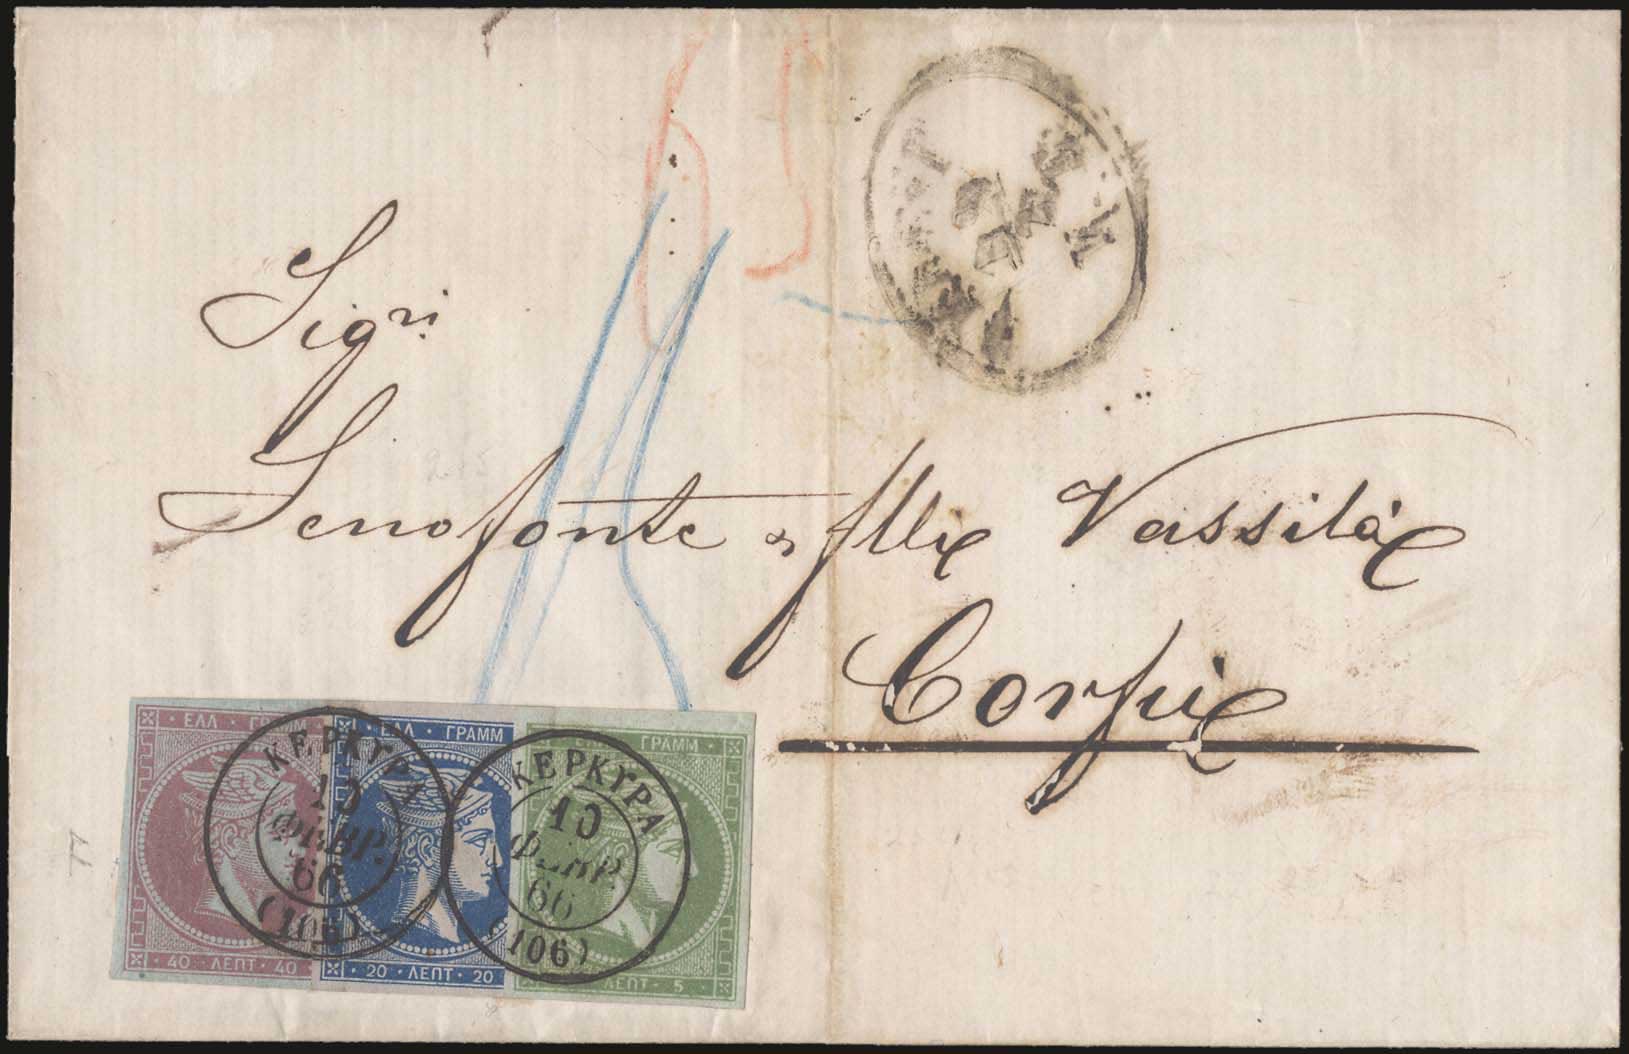 Sig^ri
Senofonte & flli Vassilà
Corfù
ΕΛΛ · ΓΡΑΜΜ
40 · ΛΕΠΤ · 40
ΕΛΛ · ΓΡΑΜΜ
20 · ΛΕΠΤ · 20
ΓΡΑΜΜ
ΛΕΠΤ · 5
ΚΕΡΚΥΡΑ
10
ΦΕΒΡ.
66
(106)
ΚΕΡΚΥΡΑ
10
ΦΕΒΡ.
66
(106)